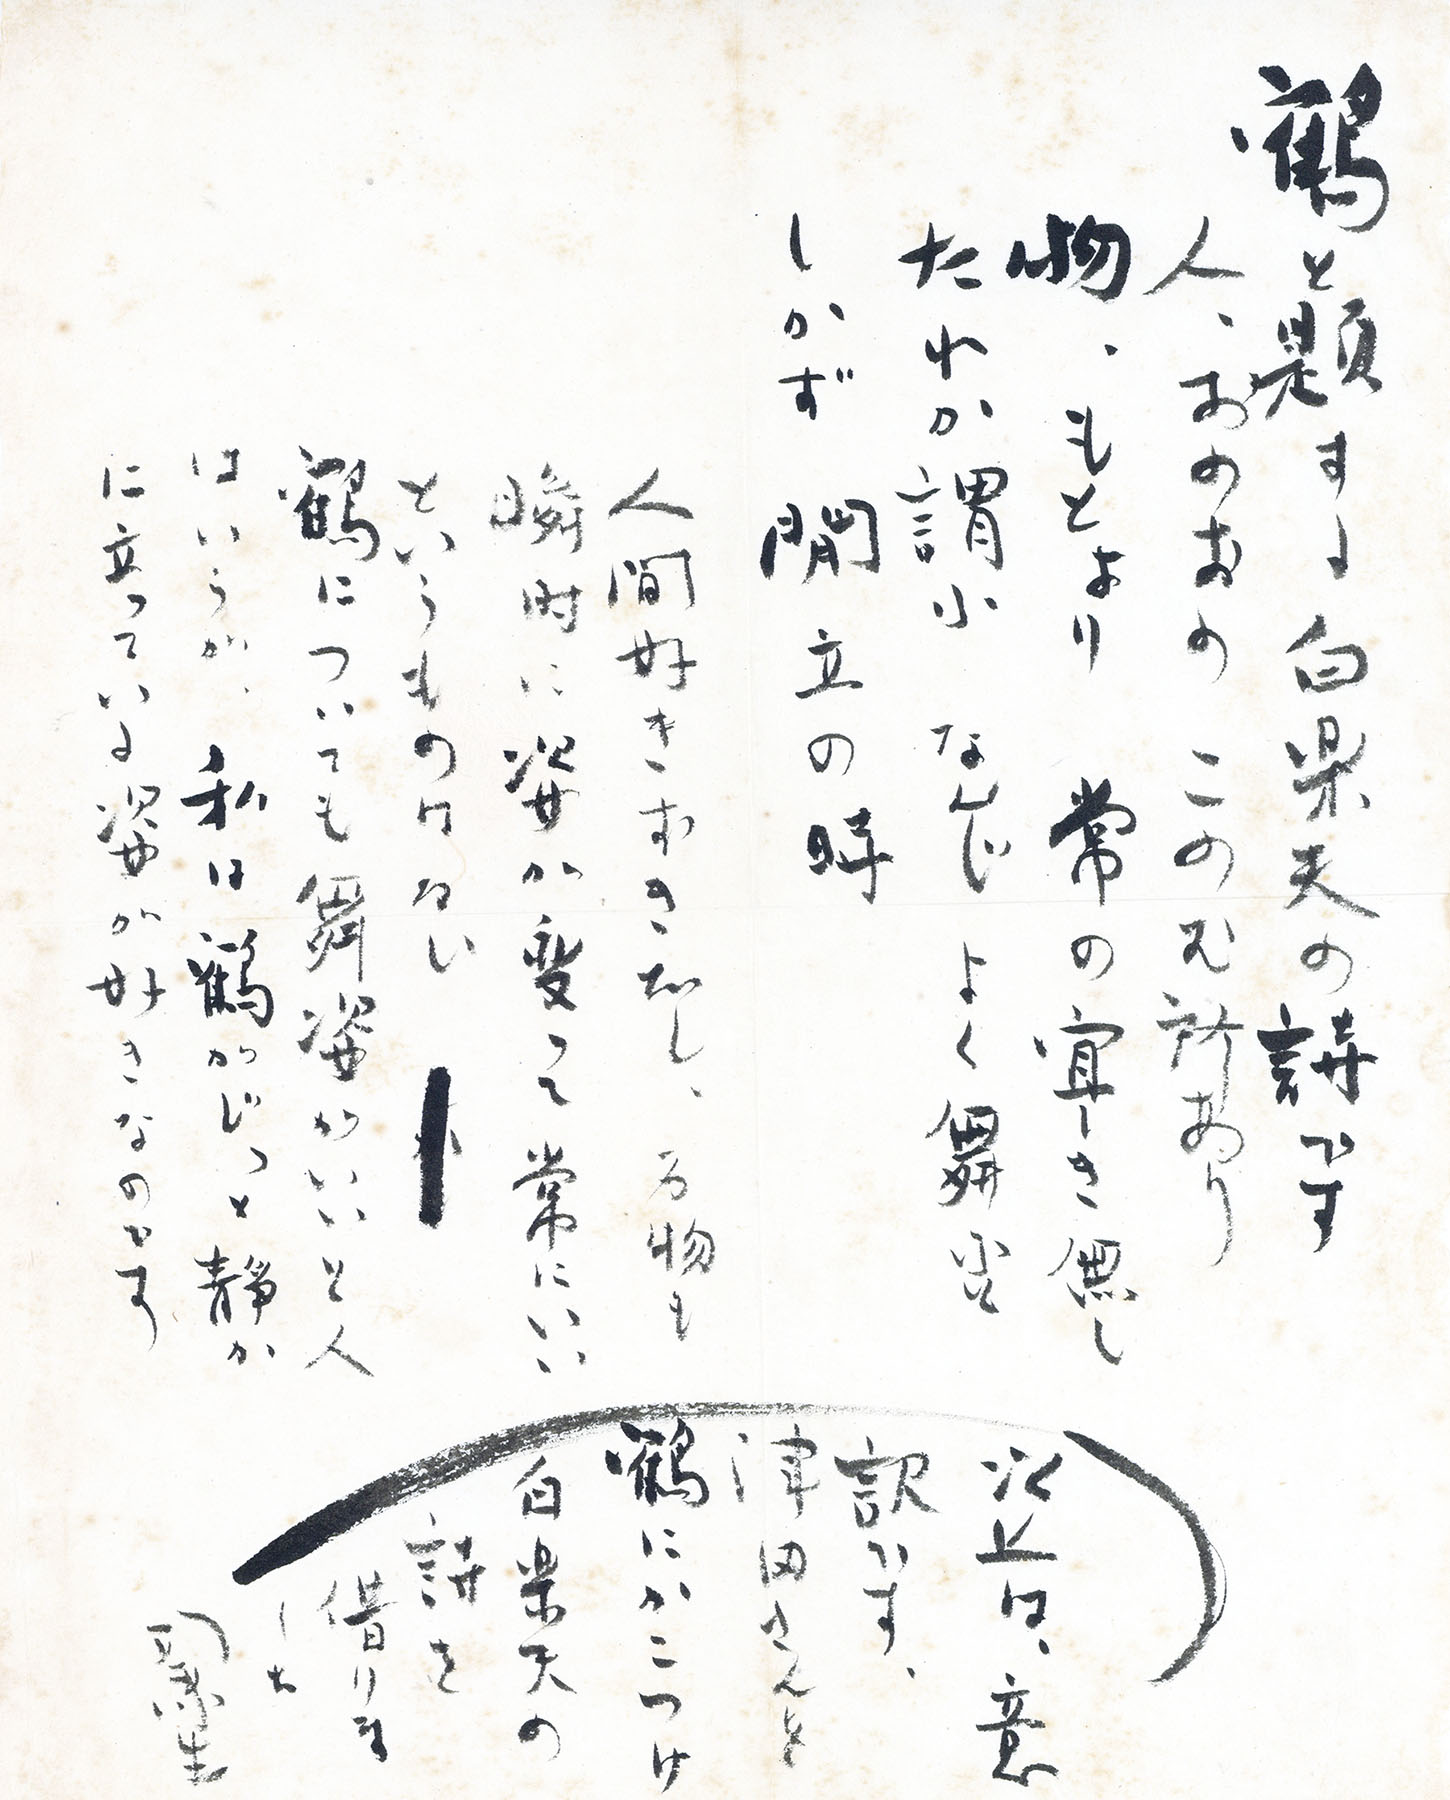 鶴と題する白楽天の詩です
人、おのおの このむ所あり
物、もとより 常の宜しき無し
たれか謂ふ なんじ よく舞うと
しかず 閒立の時
人間好きずきだし、万物も
瞬時に姿が変って常にいい
というものはない
鶴についても舞姿がいいと人
はいうが、私は鶴がじっと静か
に立っている姿が好きなのです
次上は、意
訳です、
津田さんを
鶴にかこつけ
白楽天の
詩を
借りま
した